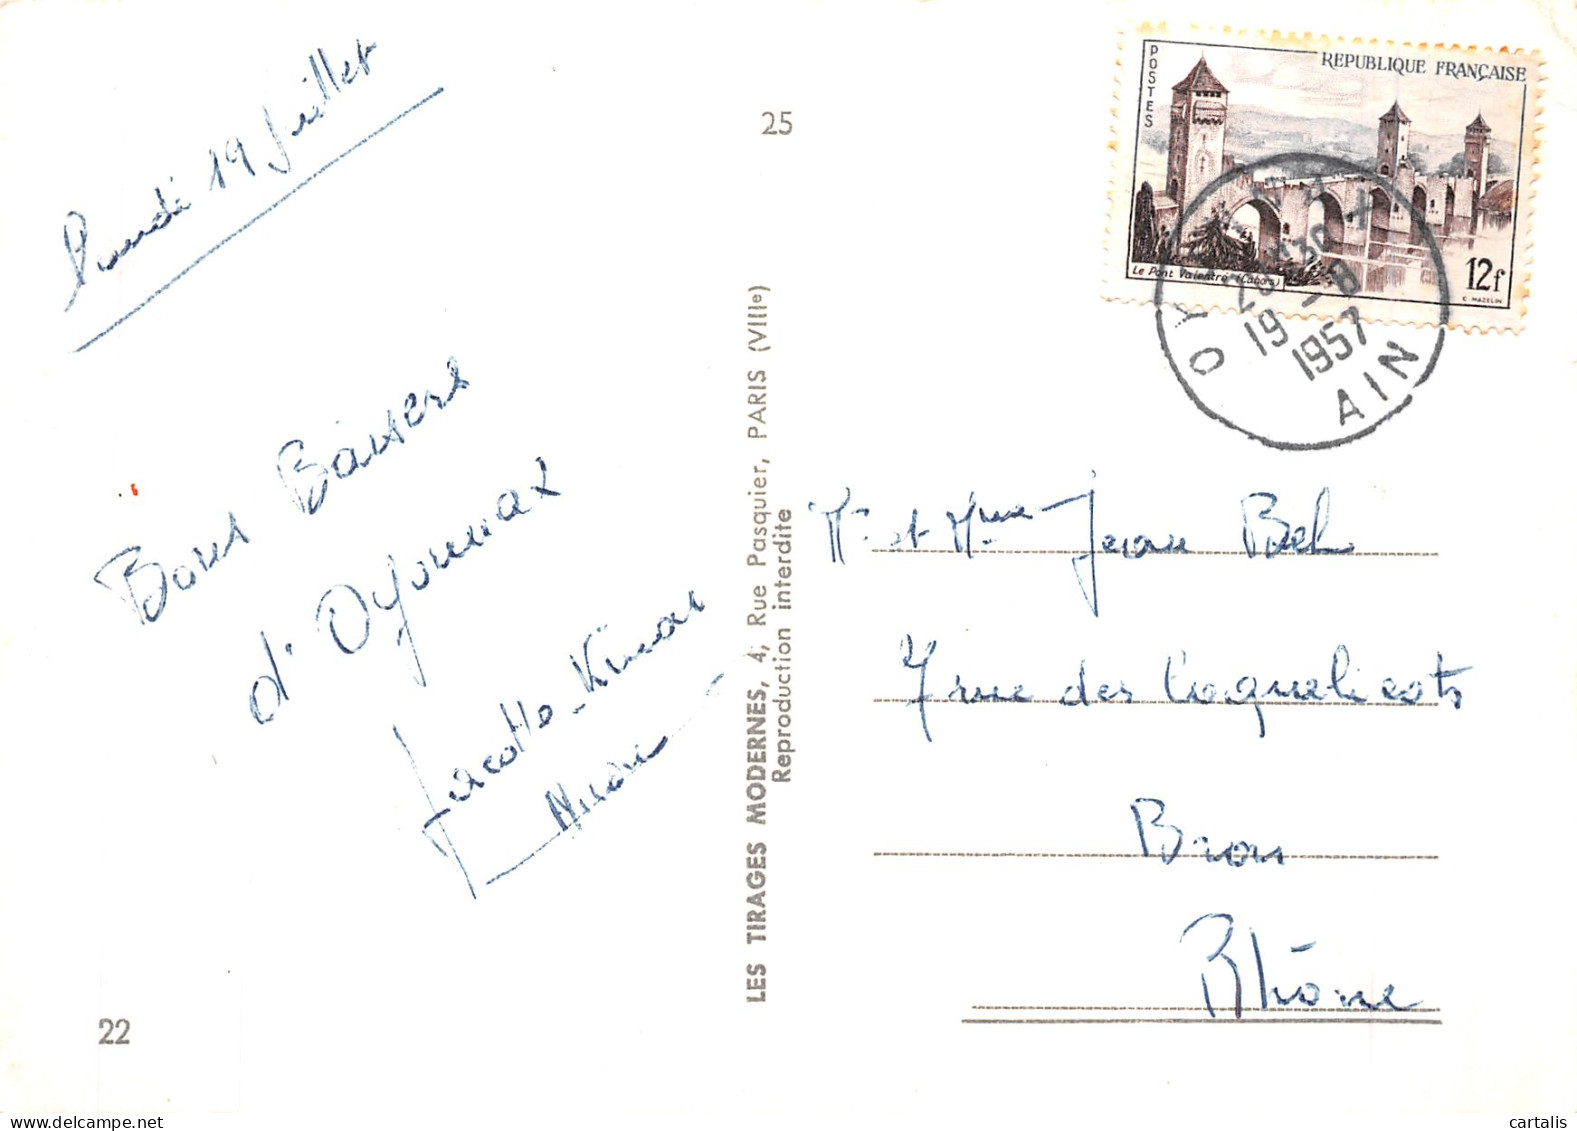 Lundi 19 Juillet
Bons Baisers
d'Oyonnax
25
LES TIRAGES MODERNES, 4, Rue Pasquier, PARIS (VIIIe)
Reproduction interdite
22
POSTES
REPUBLIQUE FRANÇAISE
Le Pont Valentré (Cahors)
12f
C. MAZELIN
OY
19 -8
1957
AIN
Mr et Mme Jean
7 rue des Coquelicots
Bron
Rhône
cartalis